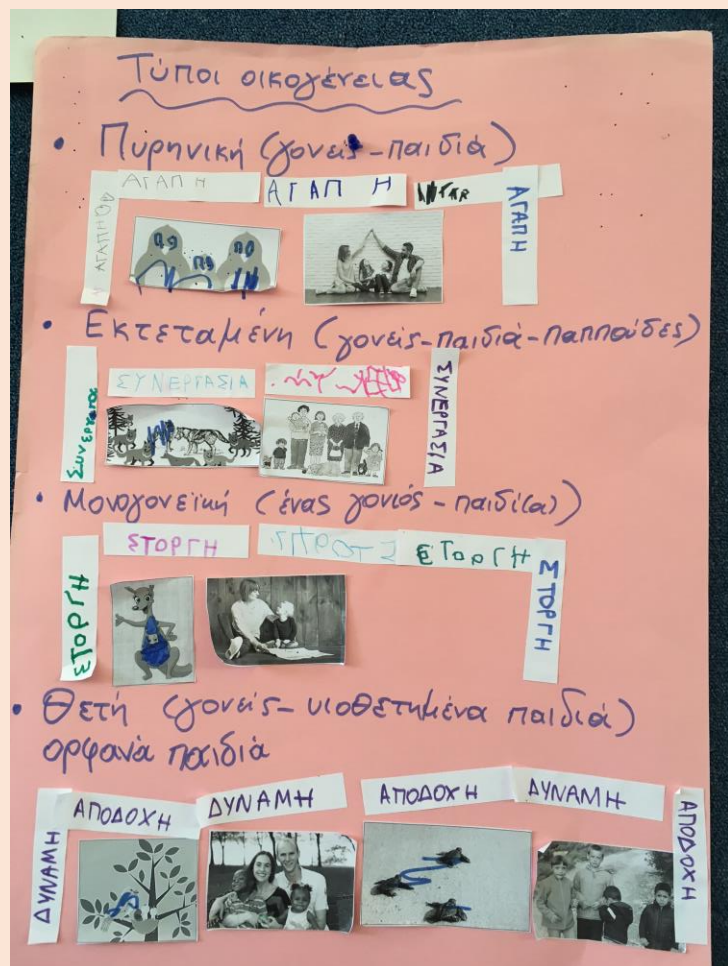 Τύποι οικογένειας
• Πυρηνική (γονείς-παιδιά)
ΑΓΑΠΗ
ΑΓΑΠΗ
ΑΓΑΠΗ
ΑΓΑΠΗ
• Εκτεταμένη (γονείς-παιδιά-παππούδες)
ΣΥΝΕΡΓΑΣΙΑ
ΣΥΝΕΡΓΑΣΙΑ
• Μονογονεϊκή (ένας γονιός - παιδί(α))
ΣΤΟΡΓΗ
ΣΤΟΡΓΗ
ΣΤΟΡΓΗ
ΣΤΟΡΓΗ
• Θετή (γονείς- υιοθετημένα παιδιά)
ορφανά παιδιά
ΔΥΝΑΜΗ
ΑΠΟΔΟΧΗ
ΔΥΝΑΜΗ
ΑΠΟΔΟΧΗ
ΔΥΝΑΜΗ
ΑΠΟΔΟΧΗ